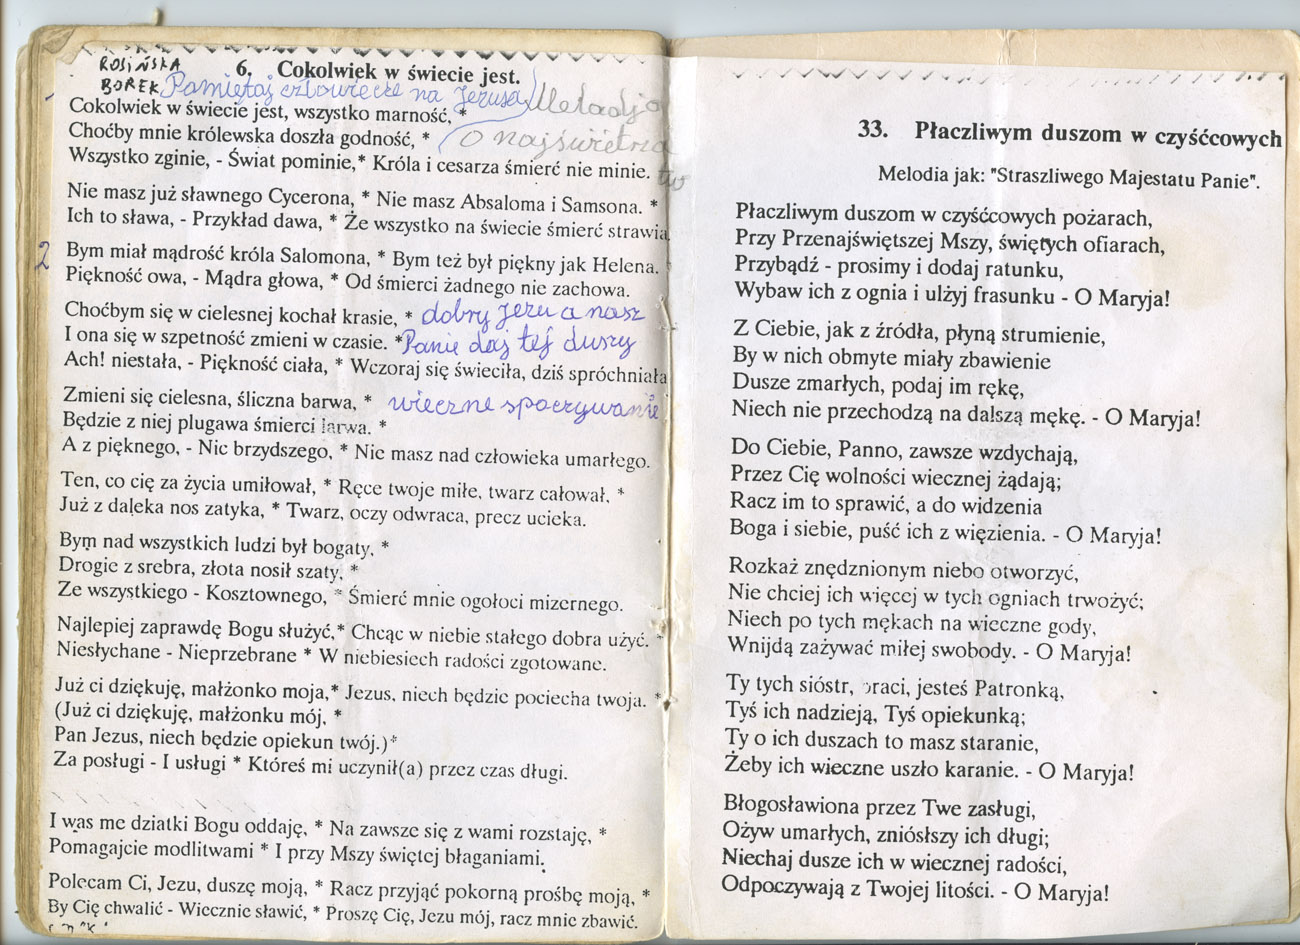 ROSIŃSKA
BOREK
6. Cokolwiek w świecie jest.
Pamiętaj człowiecze na Jezusa
Melodja
O najświętsza
Cokolwiek w świecie jest, wszystko marność, *
Choćby mnie królewska doszła godność, *
Wszystko zginie, - Świat pominie,* Króla i cesarza śmierć nie minie.
Nie masz już sławnego Cycerona, * Nie masz Absaloma i Samsona. *
Ich to sława, - Przykład dawa, * Że wszystko na świecie śmierć strawia.
2
Bym miał mądrość króla Salomona, * Bym też był piękny jak Helena.
Piękność owa, - Mądra głowa, * Od śmierci żadnego nie zachowa.
Choćbym się w cielesnej kochał krasie, * dobry Jezu a nasz
I ona się w szpetność zmieni w czasie. * Panie daj tej duszy
Ach! niestała, - Piękność ciała, * Wczoraj się świeciła, dziś spróchniała
Zmieni się cielesna, śliczna barwa, * wieczne spoczywanie
Będzie z niej plugawa śmierci larwa. *
A z pięknego, - Nic brzydszego, * Nie masz nad człowieka umarłego.
Ten, co cię za życia umiłował, * Ręce twoje miłe, twarz całował, *
Już z daleka nos zatyka, * Twarz, oczy odwraca, precz ucieka.
Bym nad wszystkich ludzi był bogaty, *
Drogie z srebra, złota nosił szaty, *
Ze wszystkiego - Kosztownego, * Śmierć mnie ogołoci mizernego.
Najlepiej zaprawdę Bogu służyć,* Chcąc w niebie stałego dobra użyć. *
Niesłychane - Nieprzebrane * W niebiesiech radości zgotowane.
Już ci dziękuję, małżonko moja,* Jezus, niech będzie pociecha twoja. *
(Już ci dziękuję, małżonku mój, *
Pan Jezus, niech będzie opiekun twój.)*
Za posługi - I usługi * Któreś mi uczynił(a) przez czas długi.
I was me dziatki Bogu oddaję, * Na zawsze się z wami rozstaję, *
Pomagajcie modlitwami * I przy Mszy świętej błaganiami.
Polecam Ci, Jezu, duszę moją, * Racz przyjąć pokorną prośbę moją, *
By Cię chwalić - Wiecznie sławić, * Proszę Cię, Jezu mój, racz mnie zbawić.
33. Płaczliwym duszom w czyśćcowych
Melodia jak: "Straszliwego Majestatu Panie".
Płaczliwym duszom w czyśćcowych pożarach,
Przy Przenajświętszej Mszy, świętych ofiarach,
Przybądź - prosimy i dodaj ratunku,
Wybaw ich z ognia i ulżyj frasunku - O Maryja!
Z Ciebie, jak z źródła, płyną strumienie,
By w nich obmyte miały zbawienie
Dusze zmarłych, podaj im rękę,
Niech nie przechodzą na dalszą mękę. - O Maryja!
Do Ciebie, Panno, zawsze wzdychają,
Przez Cię wolności wiecznej żądają;
Racz im to sprawić, a do widzenia
Boga i siebie, puść ich z więzienia. - O Maryja!
Rozkaż znędznionym niebo otworzyć,
Nie chciej ich więcej w tych ogniach trwożyć;
Niech po tych mękach na wieczne gody,
Wnijdą zażywać miłej swobody. - O Maryja!
Ty tych sióstr, braci, jesteś Patronką,
Tyś ich nadzieją, Tyś opiekunką;
Ty o ich duszach to masz staranie,
Żeby ich wieczne uszło karanie. - O Maryja!
Błogosławiona przez Twe zasługi,
Ożyw umarłych, zniósłszy ich długi;
Niechaj dusze ich w wiecznej radości,
Odpoczywają z Twojej litości. - O Maryja!